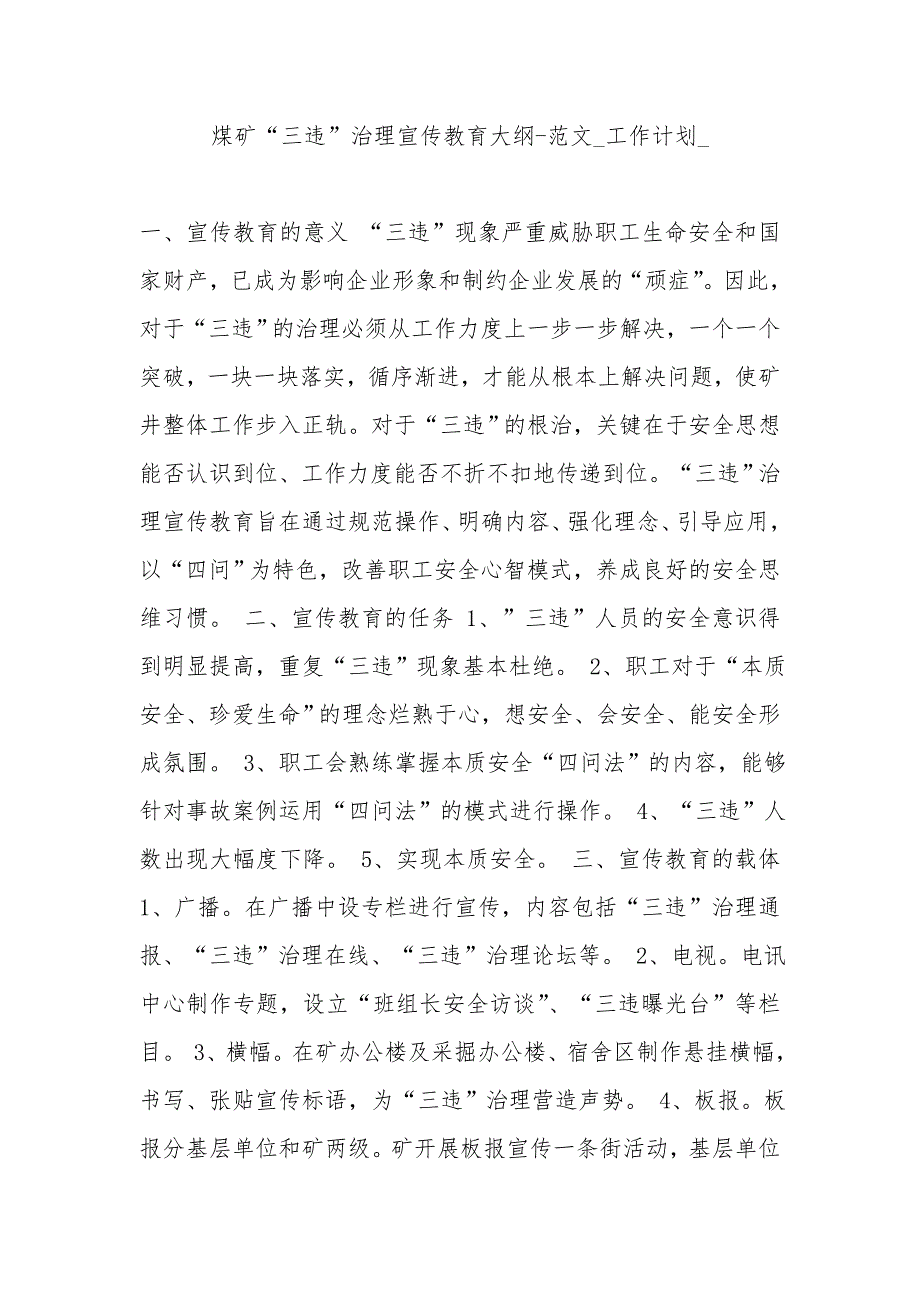 煤矿“三违”治理宣传教育大纲-范文_工作计划_
一、宣传教育的意义 “三违”现象严重威胁职工生命安全和国
家财产，已成为影响企业形象和制约企业发展的“顽症”。因此，
对于“三违”的治理必须从工作力度上一步一步解决，一个一个
突破，一块一块落实，循序渐进，才能从根本上解决问题，使矿
井整体工作步入正轨。对于“三违”的根治，关键在于安全思想
能否认识到位、工作力度能否不折不扣地传递到位。“三违”治
理宣传教育旨在通过规范操作、明确内容、强化理念、引导应用，
以“四问”为特色，改善职工安全心智模式，养成良好的安全思
维习惯。 二、宣传教育的任务 1、”三违”人员的安全意识得
到明显提高，重复“三违”现象基本杜绝。 2、职工对于“本质
安全、珍爱生命”的理念烂熟于心，想安全、会安全、能安全形
成氛围。 3、职工会熟练掌握本质安全“四问法”的内容，能够
针对事故案例运用“四问法”的模式进行操作。 4、“三违”人
数出现大幅度下降。 5、实现本质安全。 三、宣传教育的载体
1、广播。在广播中设专栏进行宣传，内容包括“三违”治理通
报、“三违”治理在线、“三违”治理论坛等。 2、电视。电讯
中心制作专题，设立“班组长安全访谈”、“三违曝光台”等栏
目。 3、横幅。在矿办公楼及采掘办公楼、宿舍区制作悬挂横幅，
书写、张贴宣传标语，为“三违”治理营造声势。 4、板报。板
报分基层单位和矿两级。矿开展板报宣传一条街活动，基层单位